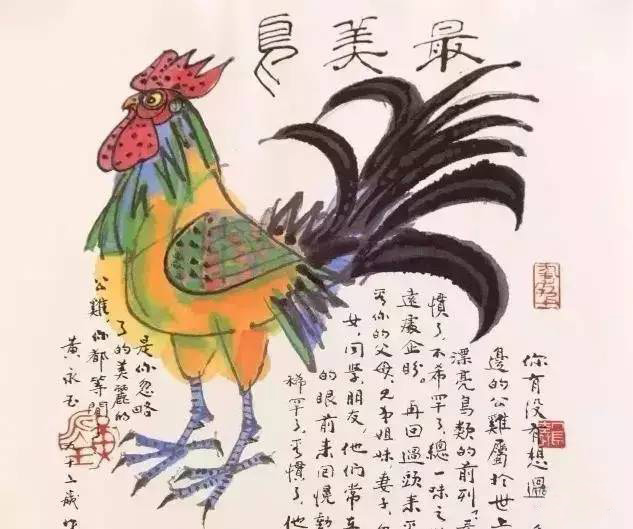 最美鳥
你有没有想過
邊的公雞屬於世上
漂亮鳥類的前列
慣了,不希罕了,總一味
遠處企盼。再回過頭來
看你的父母,兄弟姐妹,妻子
女,同學,朋友,他們常在
的眼前来回幌動
稀罕了,看慣了,他
是你忽略
了的美麗的
公雞,你都等閒
黄永玉 九十二歲作